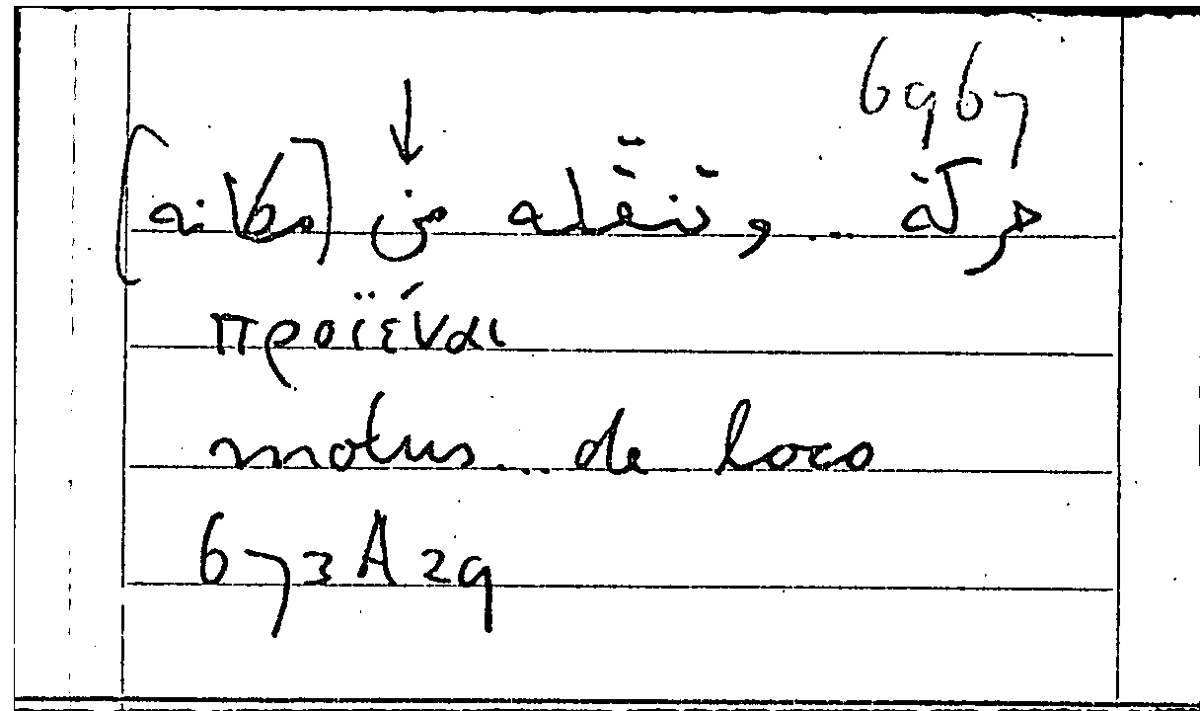 6967
حركة ... وتنقّله من (مكانه)
προϊέναι
motus... de loco
673A29